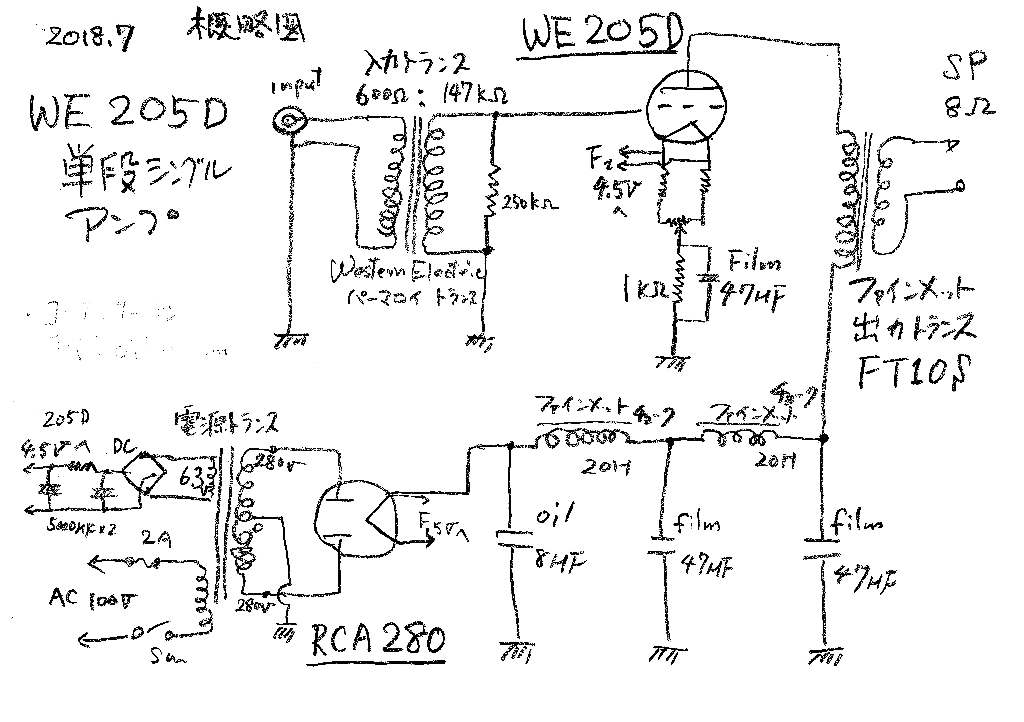 2018.7
概略図
WE 205D
単段シングル
アンプ
WE 205D
input
入力トランス
600Ω : 147kΩ
250kΩ
Western Electric
パーマロイ トランス
F2
4.5Vへ
1kΩ
Film
47μF
SP
8Ω
ファインメット
出力トランス
FT10S
205D
4.5Vへ
DC
5000μF×2
電源トランス
6.3
280V
0
280V
2A
AC 100V
SW
F1 5Vへ
RCA 280
oil
8μF
ファインメット チョーク
20H
film
47μF
ファインメット チョーク
20H
film
47μF